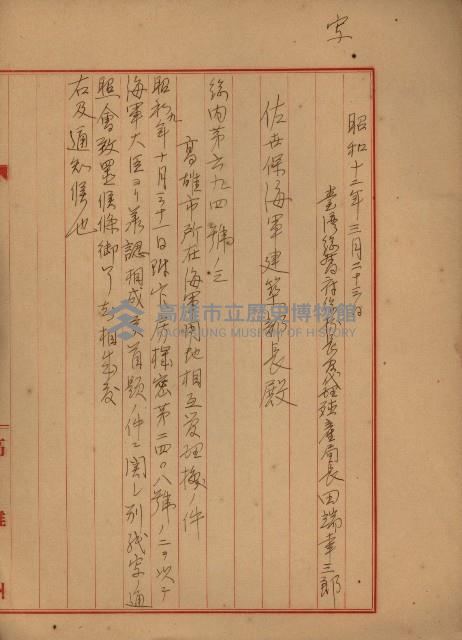 写
昭和十二年三月二十三日
台湾総督府総務長官代理殖産局長田端幸三郎
佐世保海軍建築部長殿
総内第六九四號ノ三
高雄市所在海軍用地相互管理換ノ件
昭和九年十月三十一日附官房機密第二四〇八號ノ二ヲ以テ
海軍大臣ヨリ承認相成候首題ノ件ニ関シ別紙写ノ通
照會致置候條御了知相成度
右及通知候也
高雄市立歷史博物館
KAOHSIUNG MUSEUM OF HISTORY
高雄州